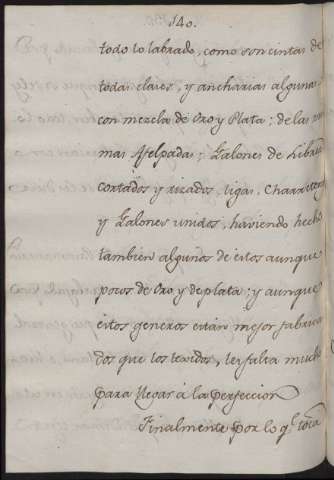 140.
todo lo labrado, como son cintas de
todas clases, y anchurias algunas
con mezcla de Oro y Plata; de las
mas Afelpadas; Galones de Librea
cortados y rizados, ligas,
y Galones unidos, haviendo hecho
tambien algunos de estos aunque
pocos de Oro y de plata; y aunque
estos generos están mejor fabrica
dos que los texidos, les falta mucho
para llegar á la perfeccion
Finalmente por lo q.e toca